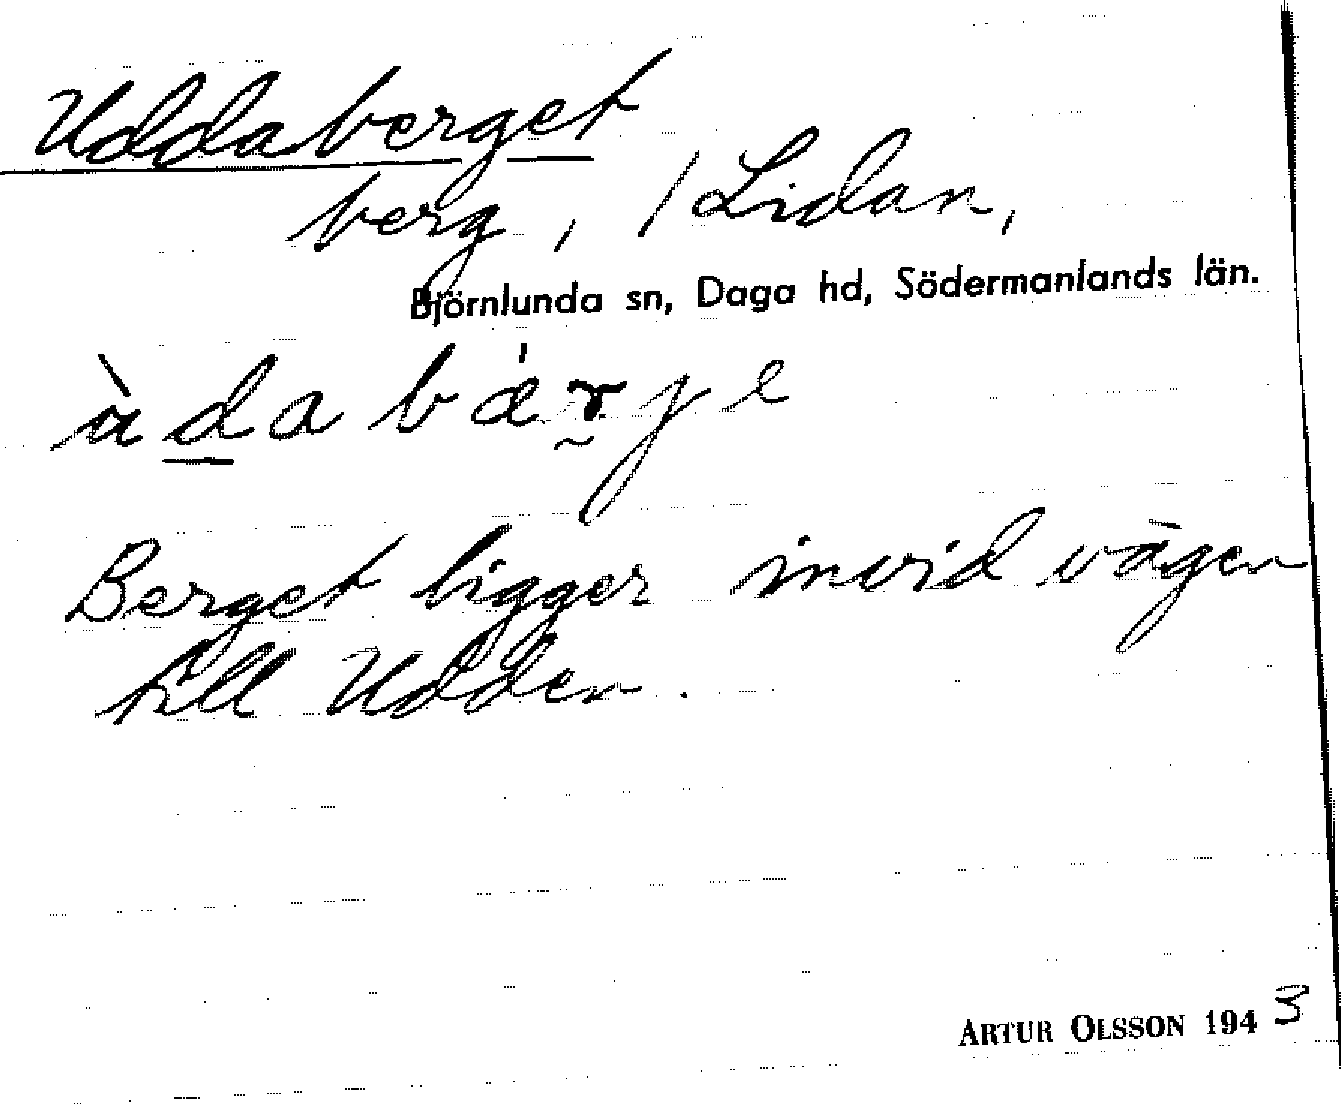 Uddaberget
berg, / Lidan,
Björnlunda sn, Daga hd, Södermanlands län.
Berget ligger invid vägen
till Udden.
ARTUR OLSSON 1943